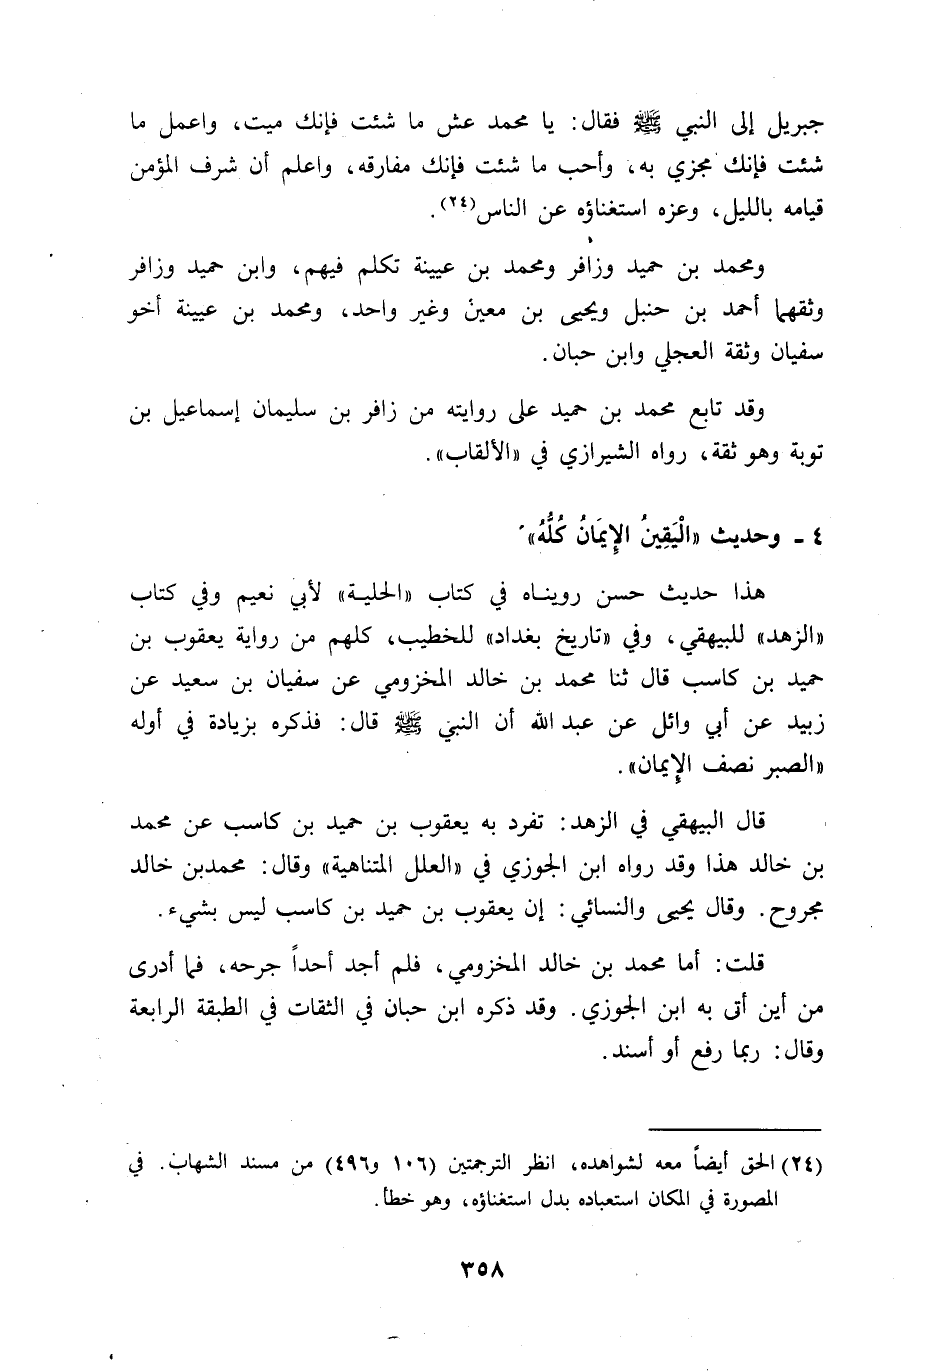 جبريل إلى النبي ﷺ فقال: يا محمد عش ما شئت فإنك ميت، واعمل ما
شئت فإنك مجزي به، وأحب ما شئت فإنك مفارقه، واعلم أن شرف المؤمن
قيامه بالليل، وعزه استغناؤه عن الناس(٢٤).
ومحمد بن حميد وزافر ومحمد بن عيينة تكلم فيهم، وابن حميد وزافر
وثقهما أحمد بن حنبل ويحيى بن معين وغير واحد، ومحمد بن عيينة أخو
سفيان وثقة العجلي وابن حبان.
وقد تابع محمد بن حميد على روايته من زافر بن سليمان إسماعيل بن
توبة وهو ثقة، رواه الشيرازي في «الألقاب».
٤ - وحديث «الْيَقِينُ الإِيمَانُ كُلُّهُ»
هذا حديث حسن رويناه في كتاب «الحلية» لأبي نعيم وفي كتاب
«الزهد» للبيهقي، وفي «تاريخ بغداد» للخطيب، كلهم من رواية يعقوب بن
حميد بن كاسب قال ثنا محمد بن خالد المخزومي عن سفيان بن سعيد عن
زبيد عن أبي وائل عن عبد الله أن النبي ﷺ قال: فذكره بزيادة في أوله
«الصبر نصف الإِيمان».
قال البيهقي في الزهد: تفرد به يعقوب بن حميد بن كاسب عن محمد
بن خالد هذا وقد رواه ابن الجوزي في «العلل المتناهية» وقال: محمدبن خالد
مجروح. وقال يحيى والنسائي: إن يعقوب بن حميد بن كاسب ليس بشيء.
قلت: أما محمد بن خالد المخزومي، فلم أجد أحداً جرحه، فما أدرى
من أين أتى به ابن الجوزي. وقد ذكره ابن حبان في الثقات في الطبقة الرابعة
وقال: ربما رفع أو أسند.
(٢٤) الحق أيضاً معه لشواهده، انظر الترجمتين (١٠٦ و٤٩٦) من مسند الشهاب. في
المصورة في المكان استعباده بدل استغناؤه، وهو خطأ.
٣٥٨